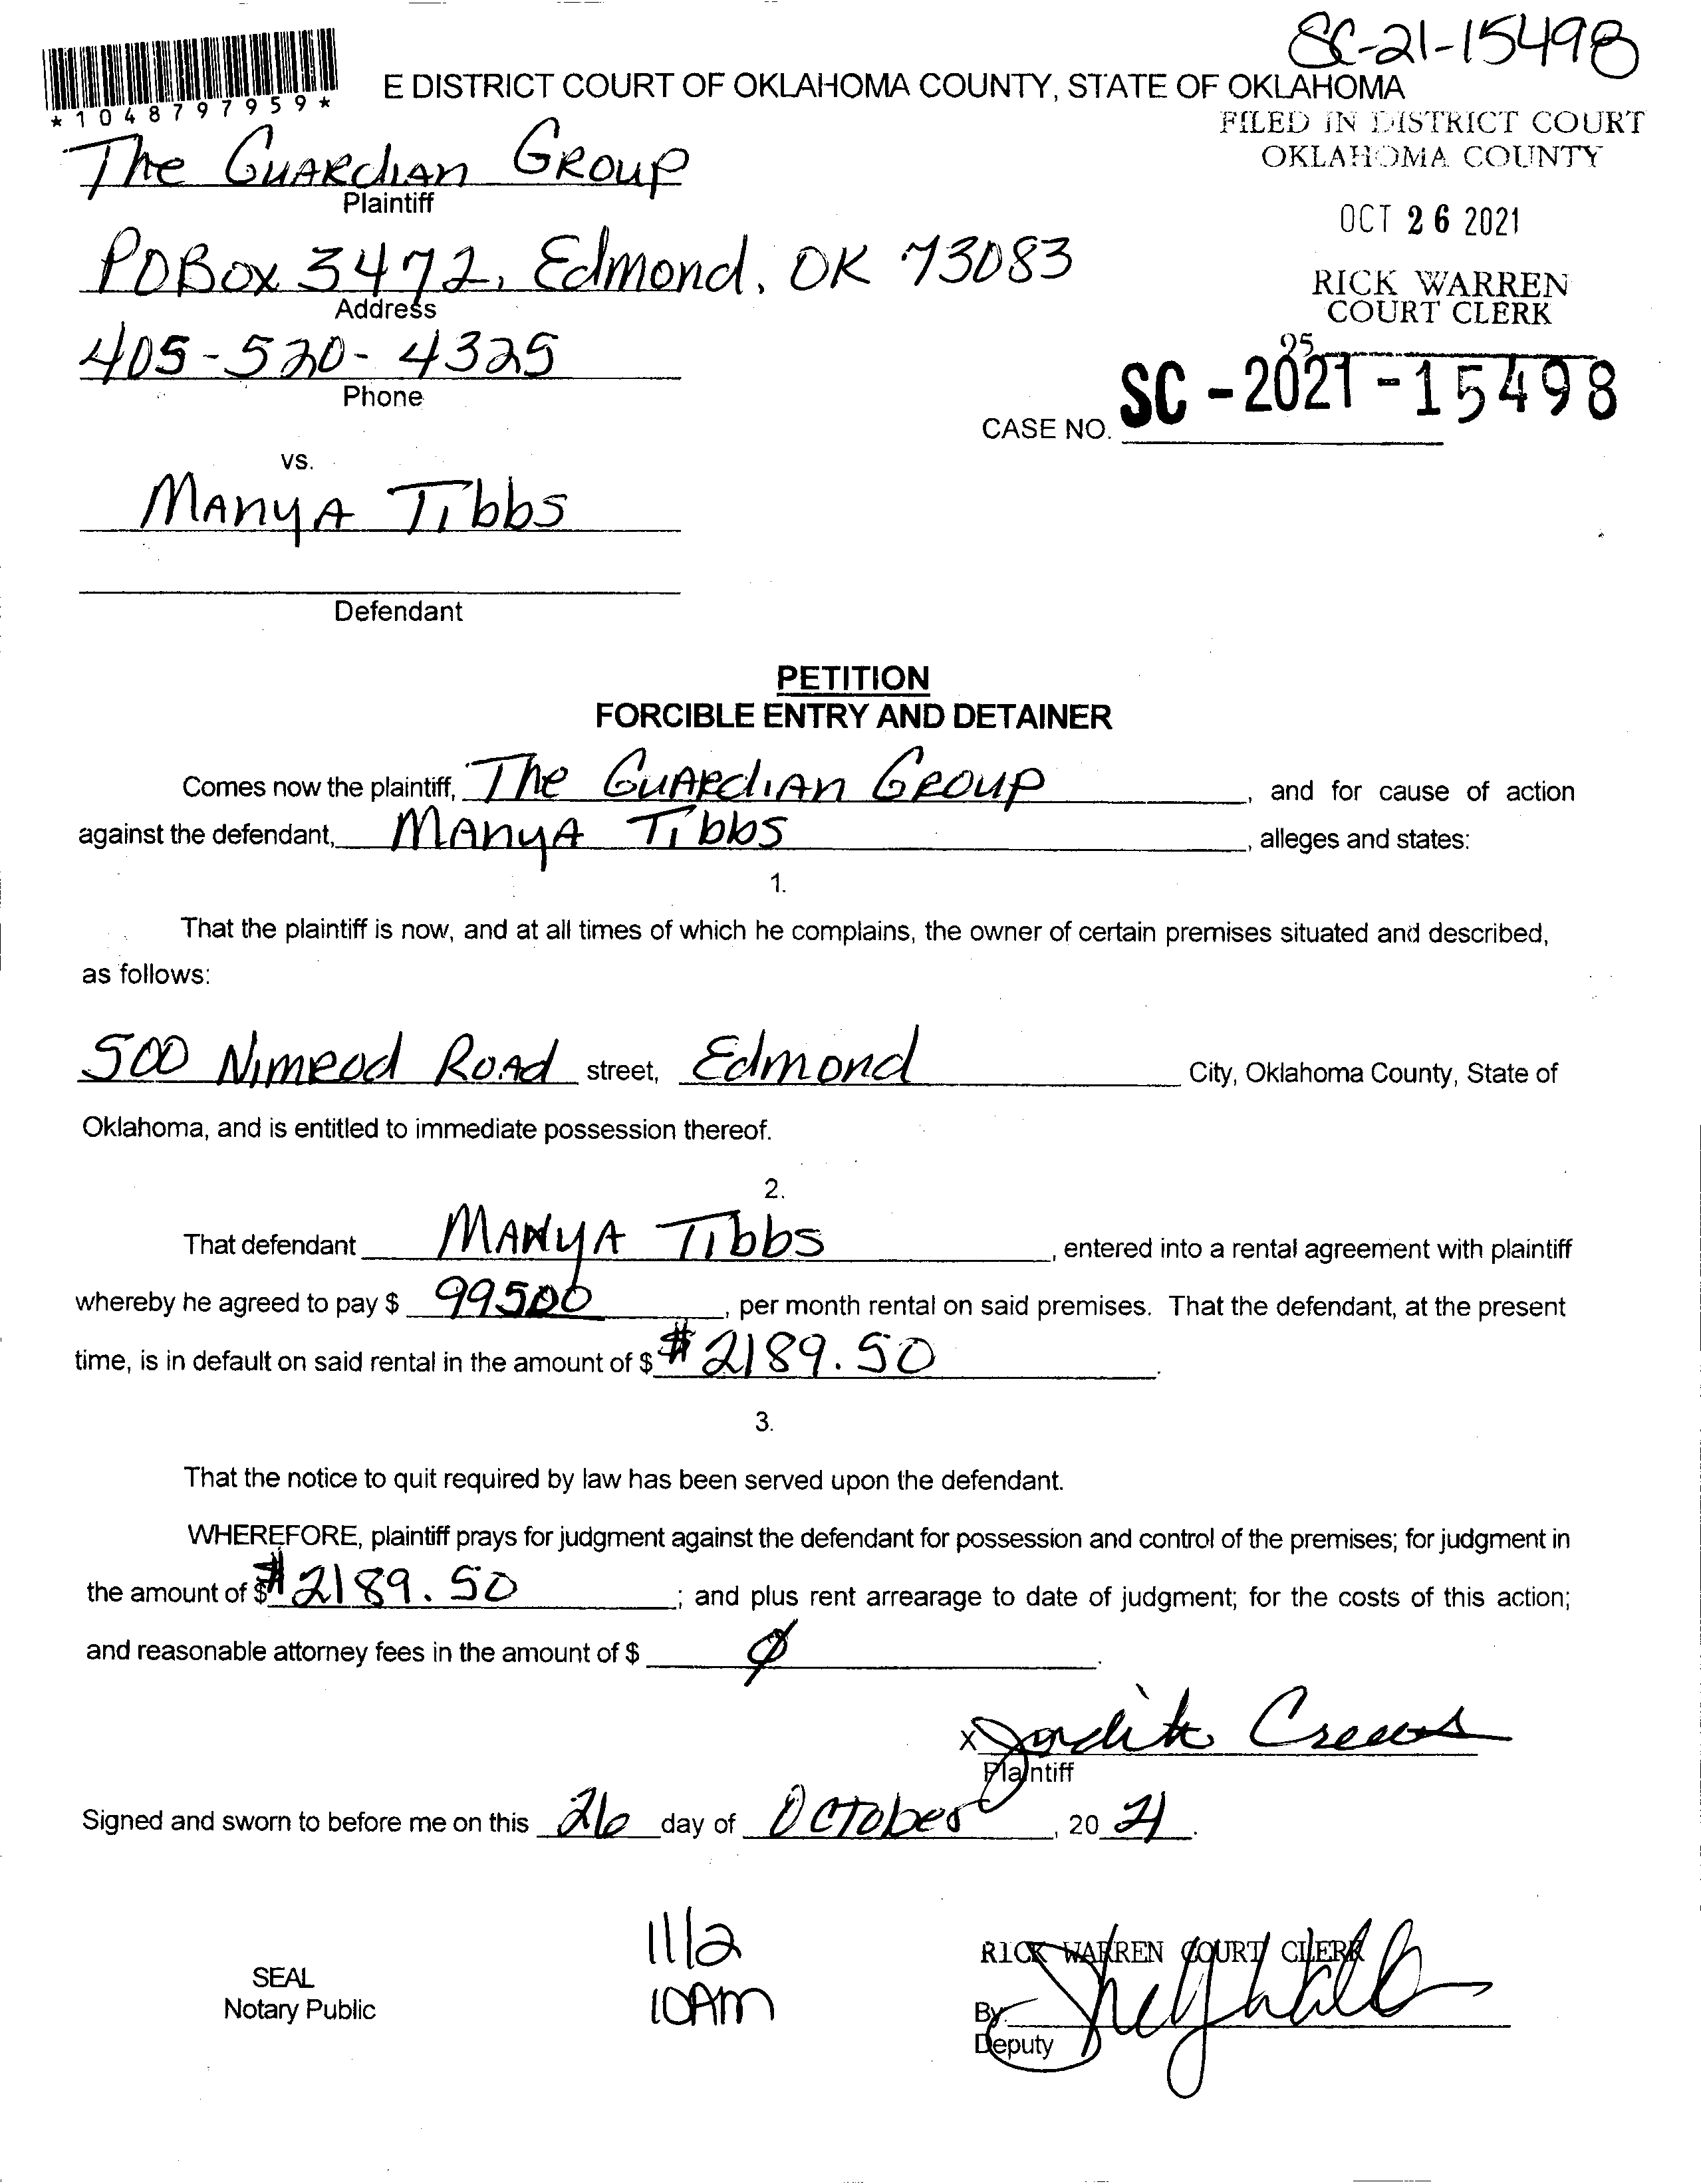 SC-21-15498
E DISTRICT COURT OF OKLAHOMA COUNTY, STATE OF OKLAHOMA
*1048797959*
FILED IN DISTRICT COURT
OKLAHOMA COUNTY
The Guardian Group
Plaintiff
OCT 26 2021
POBox 3472, Edmond, OK 73083
Address
RICK WARREN
COURT CLERK
95
405-520-4325
Phone
CASE NO. SC-2021-15498
vs.
Manya Tibbs
Defendant
PETITION
FORCIBLE ENTRY AND DETAINER
Comes now the plaintiff, The Guardian Group, and for cause of action
against the defendant, Manya Tibbs, alleges and states:
1.
That the plaintiff is now, and at all times of which he complains, the owner of certain premises situated and described,
as follows:
500 Nimrod Road street, Edmond City, Oklahoma County, State of
Oklahoma, and is entitled to immediate possession thereof.
2.
That defendant Manya Tibbs, entered into a rental agreement with plaintiff
whereby he agreed to pay $ 99500, per month rental on said premises. That the defendant, at the present
time, is in default on said rental in the amount of $ #2189.50.
3.
That the notice to quit required by law has been served upon the defendant.
WHEREFORE, plaintiff prays for judgment against the defendant for possession and control of the premises; for judgment in
the amount of $ #2189.50; and plus rent arrearage to date of judgment; for the costs of this action;
and reasonable attorney fees in the amount of $ Ø.
X Judith Crews
Plaintiff
Signed and sworn to before me on this 26 day of October, 20 21.
11/2
10Am
SEAL
Notary Public
RICK WARREN COURT CLERK
By
Deputy